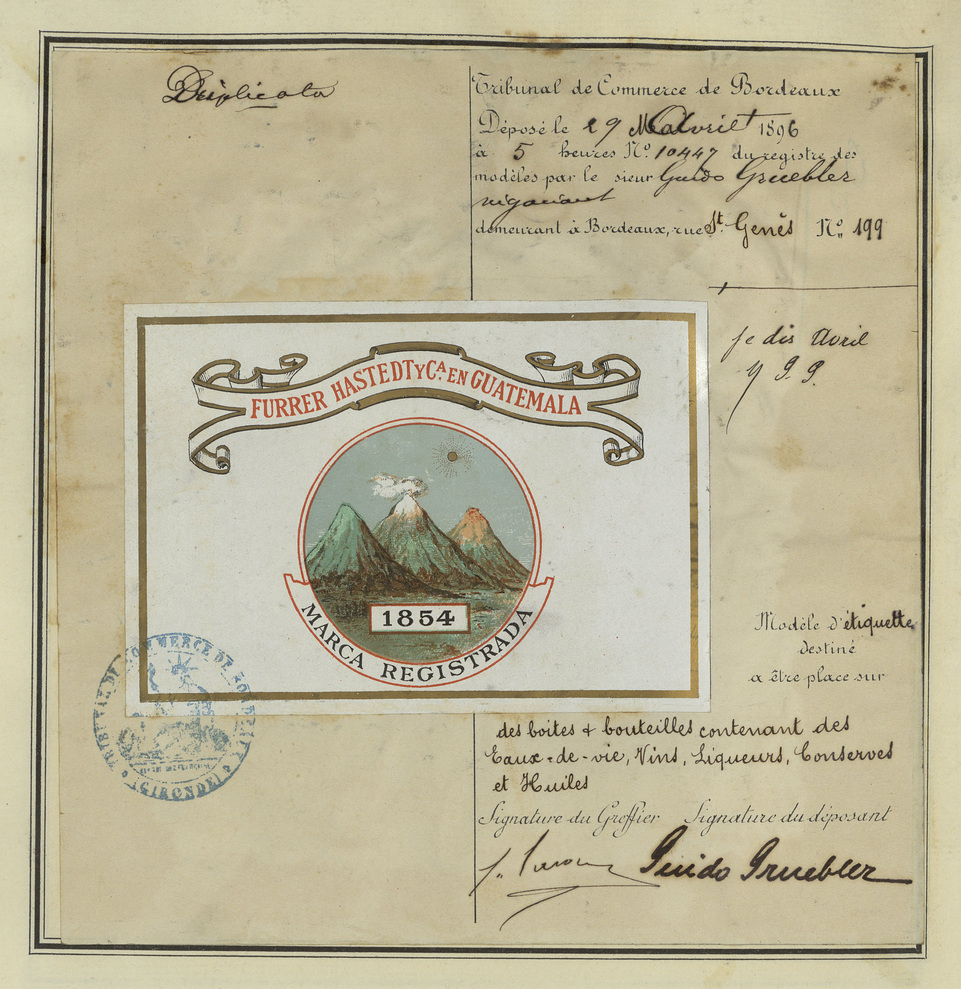 Duplicata
Tribunal de Commerce de Bordeaux
Déposé le 29 Avril 1896
à 5 heures Nº 10447 du registre des
modèles par le sieur Guido Gruebler
négociant
demeurant à Bordeaux, rue St. Genès Nº 199
je dis Avril
FURRER HASTEDT Y Cª. EN GUATEMALA
1854
MARCA REGISTRADA
Modèle d'étiquette
destiné
a être place sur
des boites & bouteilles contenant des
Eaux-de-vie, Vins, Liqueurs, Conserves
et Huiles
TRIBUNAL DE COMMERCE DE BORDEAUX
(GIRONDE)
Signature du Greffier Signature du déposant
Guido Gruebler